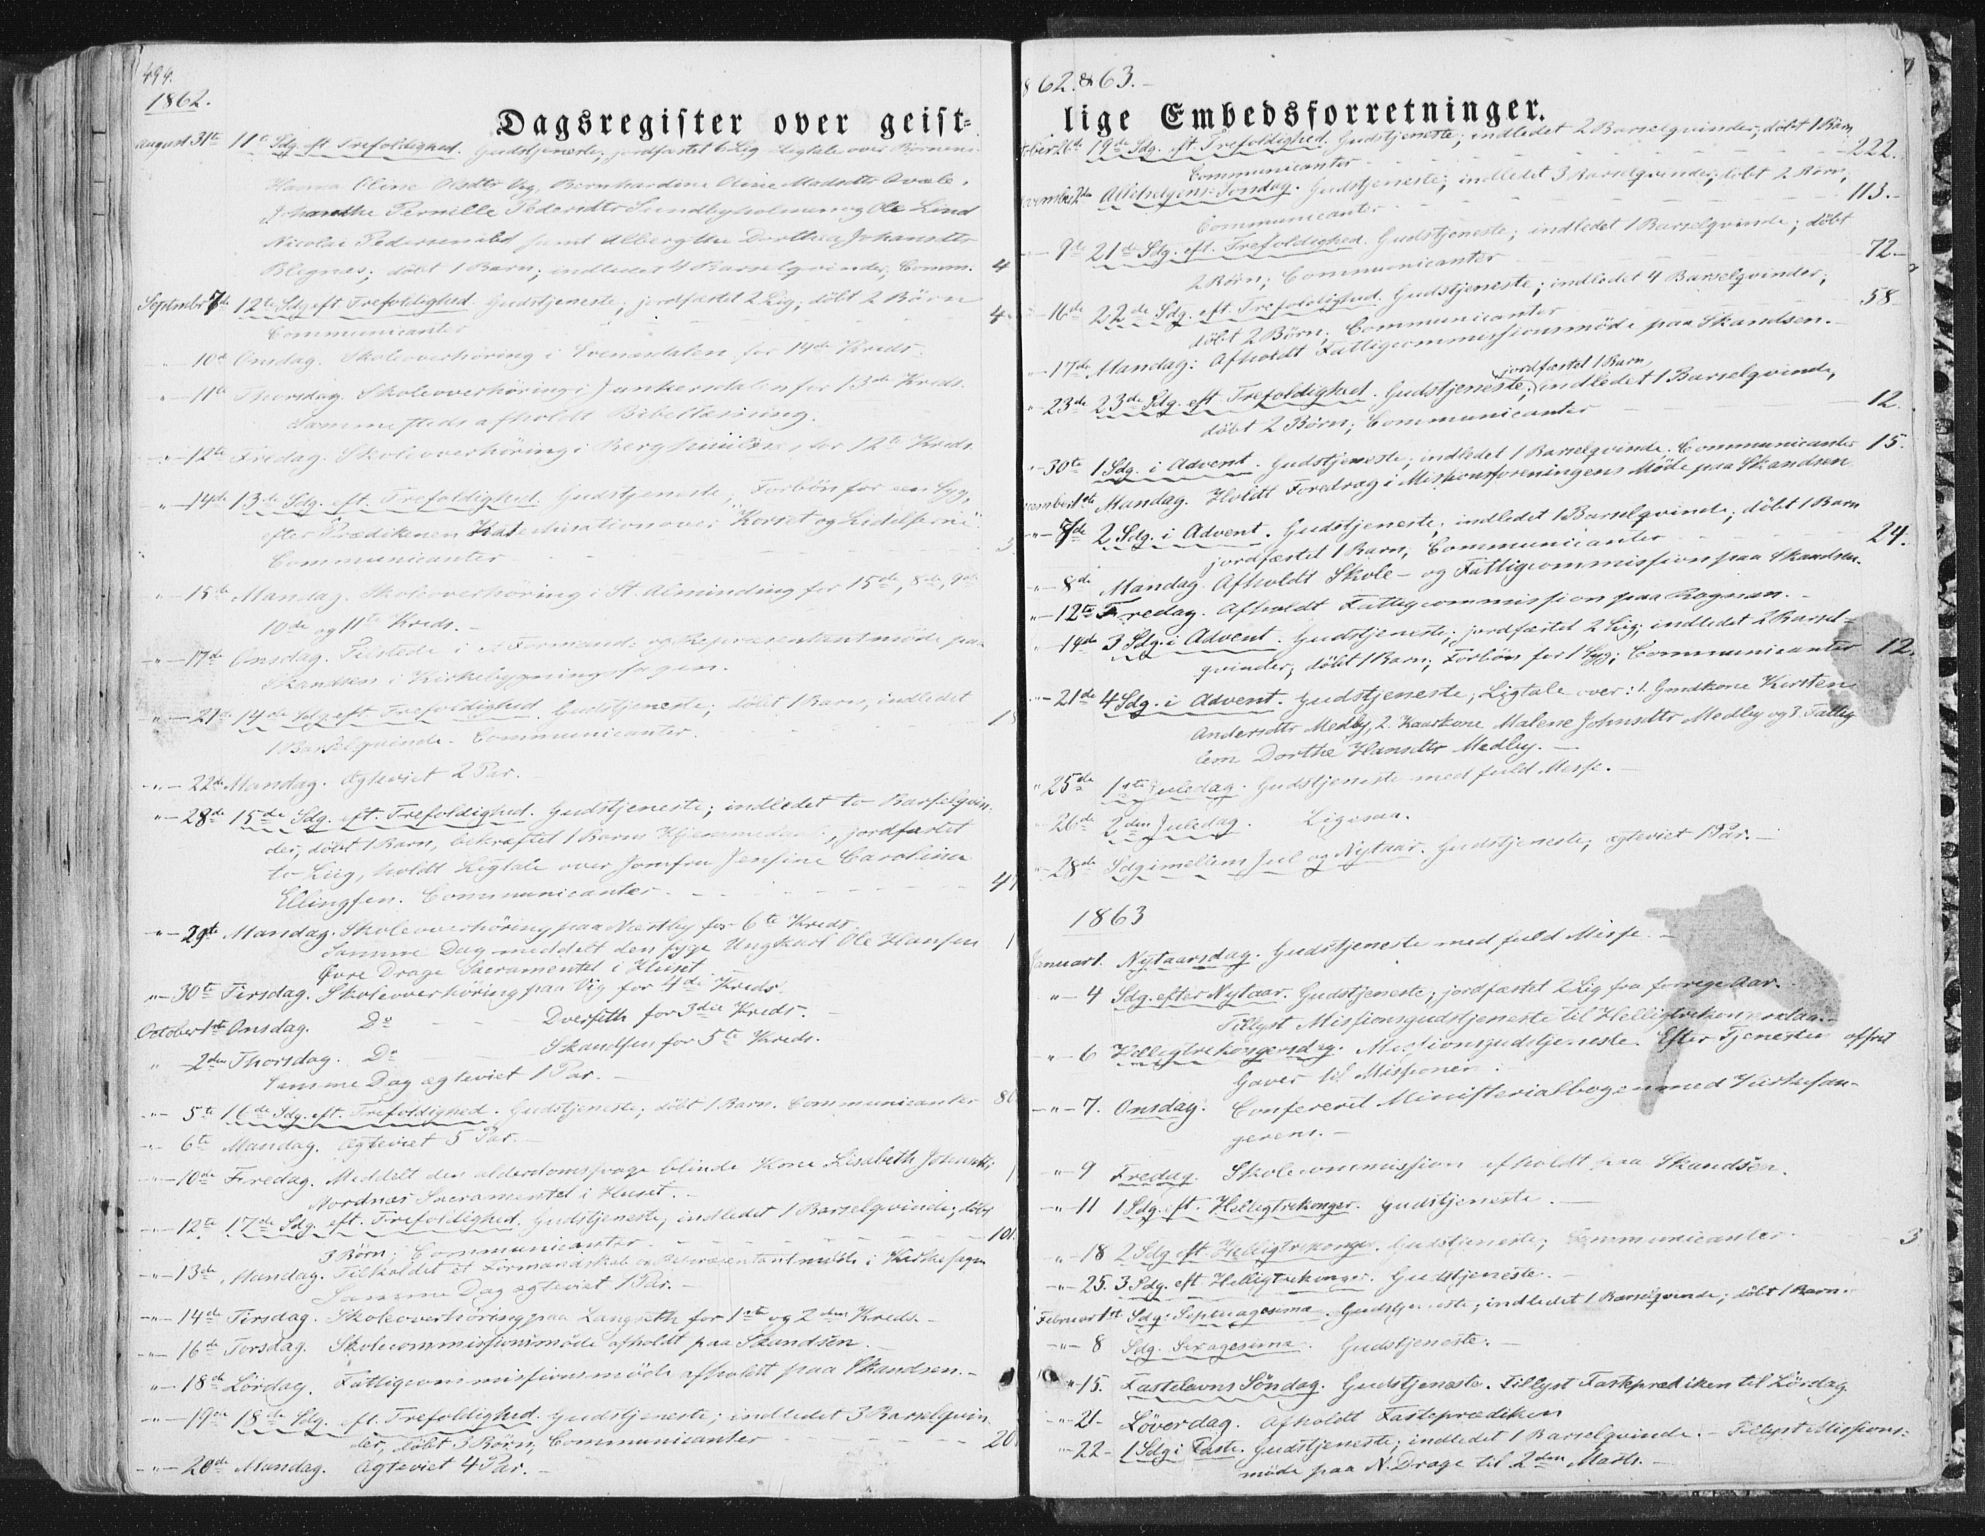 494.
1862.
Dagsregister over geist=
August 31te 11te Sdg. eft. Trefoldighed. Gudstjeneste; jordfæstet 6 Lig. Ligtale over Børnene
Hanna Oline Olsdtr Vig, Bernhardine Oline Madsdtr Avale,
Pernille Pedersdtr Sundbyholmen og Ole Lind
Nicolai Pedersen samt Albergthe Dorthea Johansdtr
Blegnæs; døbt 1 Barn; indledet 4 Barselqvinder, Comm. 4
September 7de 12te Sdg. eft. Trefoldighed. Gudstjeneste; jordfæstet 2 Lig; døbt 2 Børn
Communicanter 4
"-10de Onsdag. Skoleoverhøring i Evenesdalen for 14de Kreds.
"-11te Thorsdag. Skoleoverhøring i Junkersdalen for 13de Kreds.
Sammesteds afholdt Bibellæsning.
"-12te Fredag. Skoleoverhøring i Berghulnes, for 12te Kreds.
"-14de 13de Sdg. eft. Trefoldighed. Gudstjeneste; Forbøn for een Syg,
efter Prædikenen Katechisation over "Korset og Lidelserne".
Communicanter 3
"-15te Mandag. Skoleoverhøring i St. Alminding for 15de, 8de, 9de
10de og 11te Kreds.-
"-17de Onsdag. Tilstede i et Formand- og Repræsentantmøde paa
Skandsen i Kirkebygningssagen.
"-21de 14de Sdg. eft. Trefoldighed. Gudstjeneste; døbt 1 Barn, indledet
1 Barselqvinde. Communicanter.
"-22de Mandag. Ægteviet 2 Par.
"-28de 15de Sdg. eft. Trefoldighed. Gudstjeneste; indledet to Barselqvin-
der, døbt 1 Barn, bekræftet 1 Barns Hjemmedaab, jordfæstet
to Liig, holdt Ligtale over Jomfru Jensine Carolina
Ellingsen. Communicanter. 47
"-29de Mandag. Skoleoverhøring paa Næstby for 6te Kreds.
Samme Dag meddelt den syge Ungkarl Ole Hansen 1
Øvre Drage Sacramentet i Huset
"-30te Tirsdag. Skoleoverhøring paa Vig for 4de Kreds.
October 1ste Onsdag. Do - - Dverseth for 3die Kreds.-
" 2den Thorsdag. Do Skandsen for 5te Kreds.
Samme Dag ægteviet 1 Par.-
"- 5te 16de Sdg. eft. Trefoldighed. Gudstjeneste; døbt 1 Barn. Communicanter 80
"- 6te Mandag. Ægteviet 5 Par.-
"-10de Fredag. Meddelt den alderdomssvage blinde Kone Lisabeth Johnsdtr, 1
Nordnæs Sacramentet i Huset.-
"-12te 17de Sdg. eft. Trefoldighed. Gudstjeneste, indledet 1 Barselqvinde; døbt
3 Børn; Communicanter 101
"-13de Mandag. Tilholdet et Formandskab og Repræsentantmøde i Kirkesagen
Samme Dag ægteviet 1 Par.-
"-14de Tirsdag. Skoleoverhøring paa Langseth for 1ste og 2den Kreds.-
"-16de Torsdag. Skolecommissionsmøde afholdt paa Skandsen.-
"-18de Lørdag. Fattigcommissionsmøde afholdt paa Skandsen.-
"-19de 18de Sdg. eft. Trefoldighed. Gudstjeneste; indledet 3 Barselqvin
der, døbt 3 Børn, Communicanter 20
"-20de Mandag. Ægteviet 4 Par.-
862. & 63.-
lige Embedsforretninger.
tober 26de 19de Sdg. eft. Trefoldighed. Gudstjeneste; indledet 2 Barselqvinder; døbt 1 Barn
Communicanter 222.
ovember 2den Allehelgens-Søndag. Gudstjeneste; indledet 3 Barselqvinder; døbt 2 Børn;
Communicanter 113.-
"- 9de 21de Sdg. eft. Trefoldighed. Gudstjeneste; indledet 1 Barselqvinde; døbt
2 Børn; Communicanter 72-
"-16de 22de Sdg. eft. Trefoldighed. Gudstjeneste; indledet 4 Barselqvinder;
døbt 2 Børn; Communicanter 58
"-17de Mandag: Afholdt Fattigcommissionsmøde paa Skandsen.-
jordfæstet 1 Barn,
"-23de 23de Sdg. eft. Trefoldighed. Gudstjeneste; indledet 1 Barselqvinde,
døbt 2 Børn; Communicanter 12.
"-30te 1 Sdg. i Advent. Gudstjeneste; indledet 1 Barselqvinde. Communicanter 15.
cember 1ste Mandag. Holdt Foredrag i Missionsforeningens Møde paa Skandsen
"-7de 2 Sdg. i Advent. Gudstjeneste, indledet 1 Barselqvinde; døbt 1 Barn
jordfæstet 1 Barn; Communicanter 24.
"- 8de Mandag. Afholdt Skole- og Fattigcommission paa Skandsen.
"-12te Fredag. Afholdt Fattigcommission paa Rognan.-
"-14de 3 Sdg. i Advent. Gudstjeneste; jordfæstet 2 Lig; indledet 2 Barsel=
qvinder; døbt 1 Barn; Forbøn for 1 Syg; Communicanter 12.
"-21de 4 Sdg. i Advent. Gudstjeneste; Ligtale over: 1. Gmdkone Kirsten
Andersdtr Medby, 2. Kaarkone Malene Johnsdtr Medby og 3. Fattig
lem Dorthe Hansdtr Medby.-
"25de 1ste Juledag. Gudstjeneste med fuld Messe.-
"26de 2den Juledag. Ligesaa.
"-28de Sdg imellem Jul og Nytaar. Gudstjeneste; ægteviet 1 Par.-
1863
Januar 1. Nytaarsdag. Gudstjeneste med fuld Messe.-
"- 4 Sdg. efter Nytaar. Gudstjeneste; jordfæstet 2 Lig fra forrige Aar.
Tillyst Missionsgudstjeneste til Helligtrekongersdag.-
"- 6 Helligtrekongersdag. Missionsgudstjeneste. Efter Tjenesten offret
Gaver til Missionen.
"-7. Onsdag. Confereret Ministerialbogen med Kirkesan-
gerens.-
"-9 Fredag. Skolecommission afholdt paa Skandsen.
"-11 1 Sdg. eft. Helligtrekonger. Gudstjeneste.-
"18 2 Sdg. eft. Helligtrekonger. Gudstjeneste; Communicanter. 3
"-25. 3 Sdg. eft. Helligtrekonger. Gudstjeneste.-
Februar 1st Sdg. Septuagesima. Gudstjeneste; indledet 1 Barselqvinde; døbt 1 Barn.
"- 8 Sdg. Sexagesima. Gudstjeneste.-
"15. Fastelavns Søndag. Gudstjeneste. Tillyst Fasteprædiken til Lördag.
"-21- Løverdag. Afholdt Fasteprædiken
"-22- 1 Sdg i Faste. Gudstjeneste; indledet 1 Barselqvinde.- Tillyst Missions=
møde paa N. Drage til 2den Marts.-